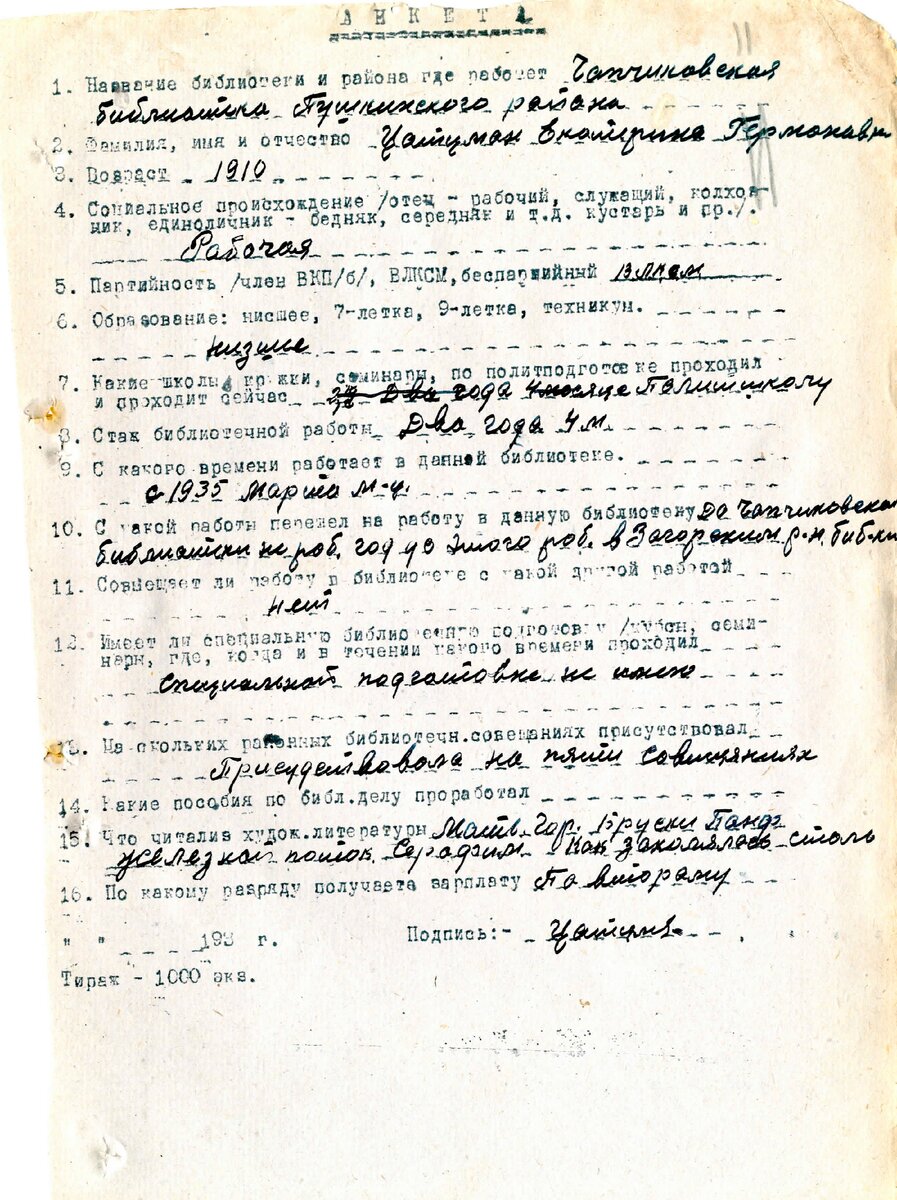 АНКЕТА
1. Название библиотеки и района где работет Чапчиковская
библиотека Пушкинского района
2. Фамилия, имя и отчество Цатуман Екатерина Германавн
3. Возраст 1910
4. Социальное происхождение /отец - рабочий, служащий, колхоз-
ник, единоличник - бедняк, середняк и т.д. кустарь и пр./.
Рабочая
5. Партийность /член ВКП/б/, ВЛКСМ, беспартийный влксм
6. Образование: нисшее, 7-летка, 9-летка, техникум.
низшие
7. Какие школы, кружки, семинары, по политподготовке проходил
и проходит сейчас Два года 4 месяце Политшколу
8. Стаж библиотечной работы Два года 4 м.
9. С какого времени работает в данной библиотеке.
с 1935 Марта м-ц.
10. С какой работы перешел на работу в данную библиотеку До Чапчиковской
библиотки не роб. год до этого роб. в Загорским р-н. биб-ки
11. Совмещает ли работу в библиотеке с какой другой работой
нет
12. Имеет ли специальную библиотечную подготовку /курсы, семи-
нары, где, когда и в течении какого времени проходил
специальной подготовке не имею
13. На скольких районных библиотечн.совещаниях присутствовал
Присудствовала на пяти совищяниях
14. Какие пособия по библ.делу проработал
15. Что читализ худож.литературы Мать. Гор. Бруски Панф
железной поток. Серафим. Как закалялась сталь
16. По какому разряду получаета зарплату По второму
" " 193 г. Подпись:-
Тираж - 1000 экз.